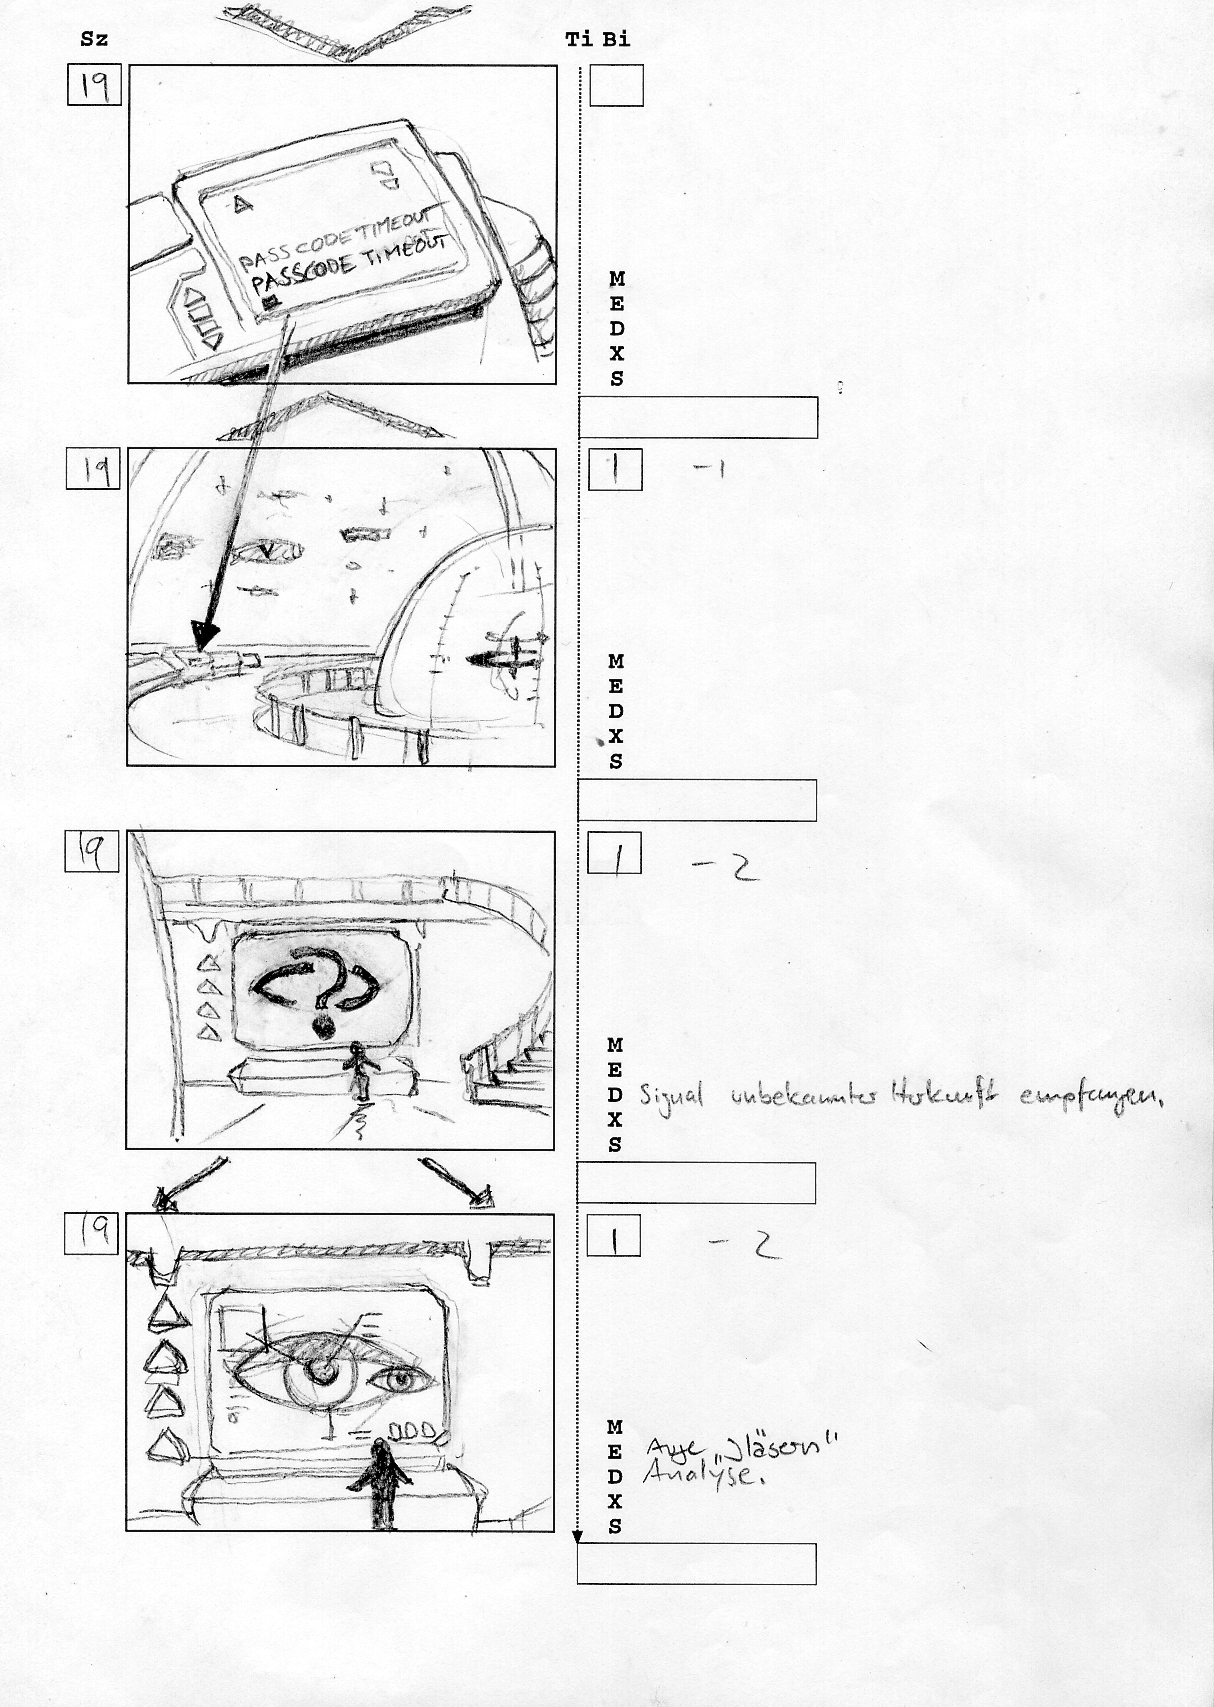 Sz Ti Bi
19
PASSCODE TIMEOUT
PASSCODE TIMEOUT
M
E
D
X
S
19 1 -1
M
E
D
X
S
19 1 -2
?
M
E
D Signal unbekannter Herkunft empfangen.
X
S
19 1 -2
M
E Auge „gläsern“
D Analyse.
X
S